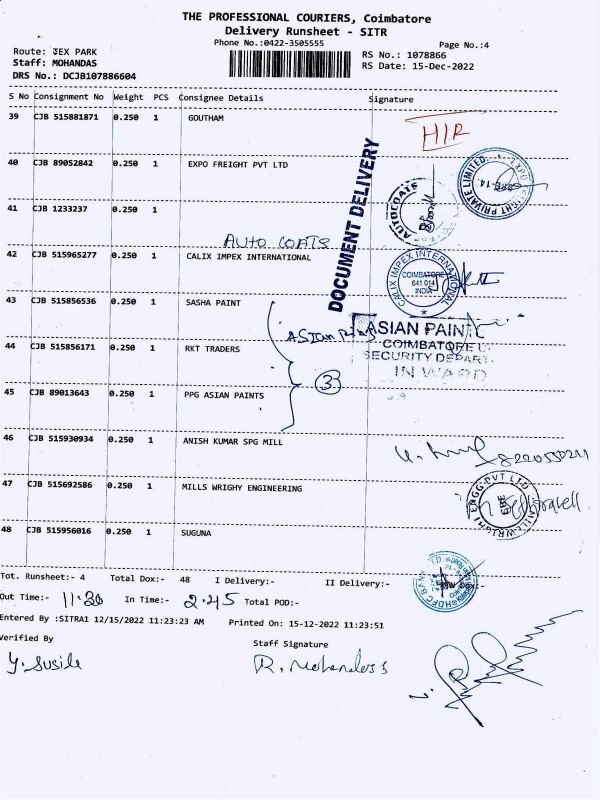 THE PROFESSIONAL COURIERS, Coimbatore
Delivery Runsheet - SITR
Phone No.:0422-3505555
Page No.:4
Route: JEX PARK
Staff: MOHANDAS
DRS No.: DCJB107886604
RS No.: 1078866
RS Date: 15-Dec-2022
S No Consignment No Weight PCS Consignee Details Signature
39 CJB 515881871 0.250 1 GOUTHAM
HIR
40 CJB 89052842 0.250 1 EXPO FREIGHT PVT LTD
DOCUMENT DELIVERY
AUTOCOATS
41 CJB 1233237 0.250 1
AUTO COATS
42 CJB 515965277 0.250 1 CALIX IMPEX INTERNATIONAL
CALIX IMPEX INTERNATIONAL
COIMBATORE
641 014
INDIA
43 CJB 515856536 0.250 1 SASHA PAINT
ASIAN PAINT
COIMBATORE
SECURITY DEPAR
IN WARD
44 CJB 515856171 0.250 1 RKT TRADERS
3
45 CJB 89013643 0.250 1 PPG ASIAN PAINTS
46 CJB 515930934 0.250 1 ANISH KUMAR SPG MILL
47 CJB 515692586 0.250 1 MILLS WRIGHY ENGINEERING
48 CJB 515956016 0.250 1 SUGUNA
Tot. Runsheet:- 4 Total Dox:- 48 I Delivery:- II Delivery:-
Out Time:- 11.30 In Time:- 2.45 Total POD:-
Entered By :SITRA1 12/15/2022 11:23:23 AM Printed On: 15-12-2022 11:23:51
Verified By
Staff Signature
Y. Susila
R. Mohandoss